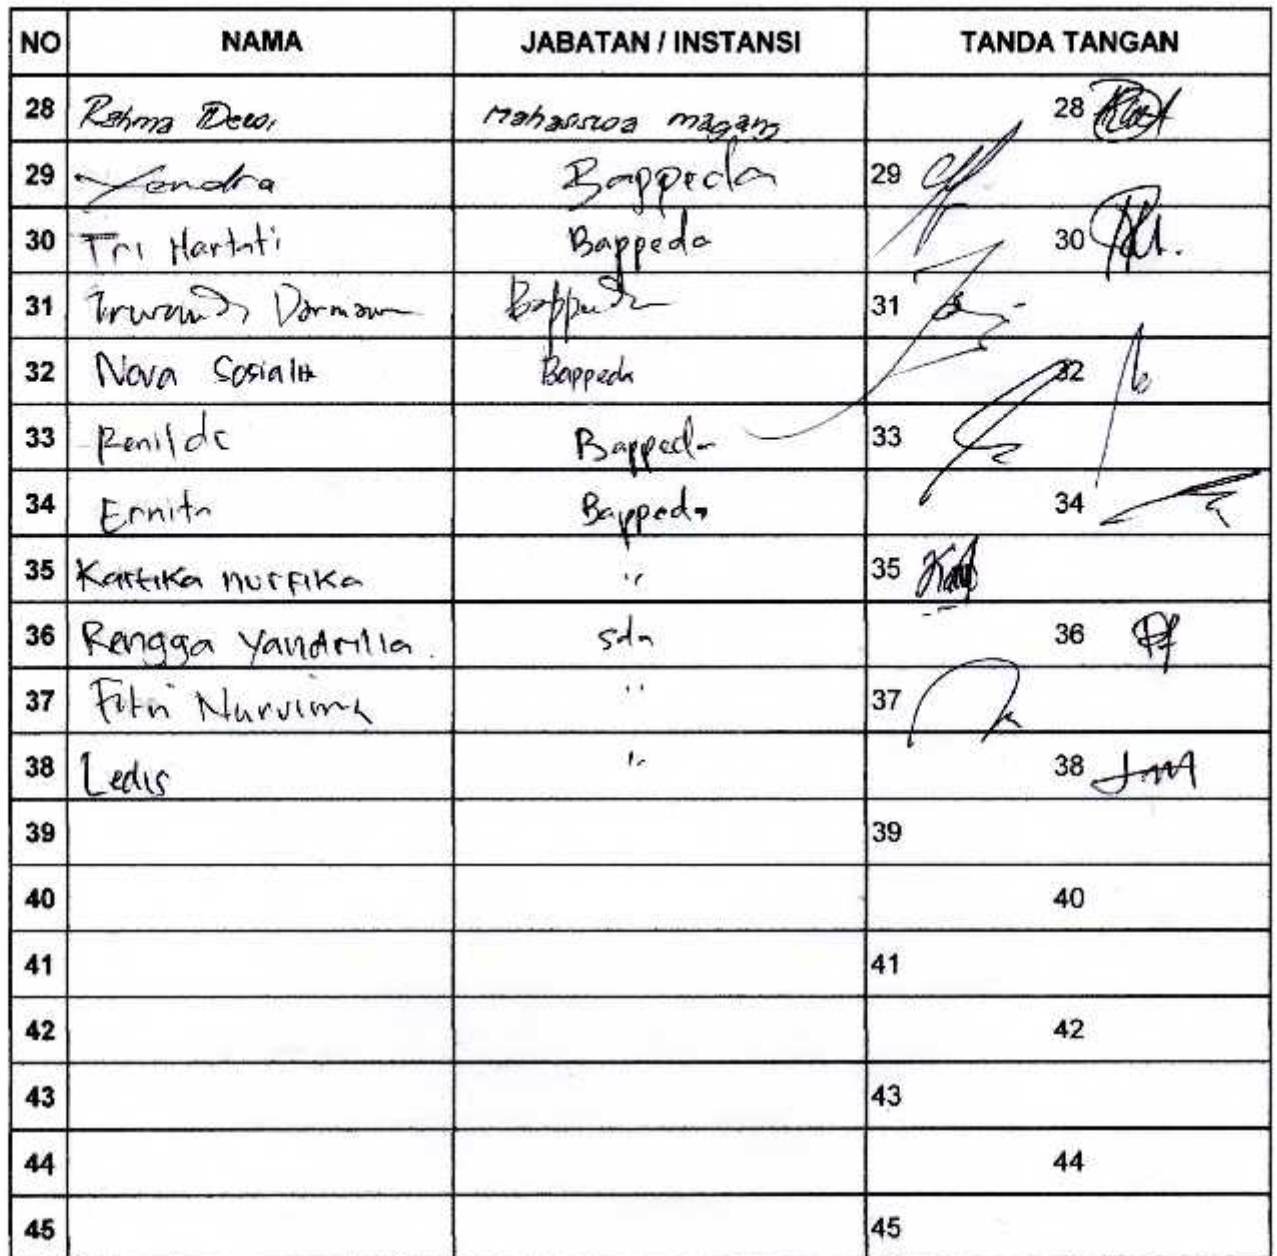 NO NAMA JABATAN / INSTANSI TANDA TANGAN
28 Rahma Dewi Mahasiswa magang 28
29 Yendra Bappeda 29
30 Tri Hartati Bappeda 30
31 Darmawan Bappeda 31
32 Nova Sosialis Bappeda 32
33 Renilda Bappeda 33
34 Ernita Bappeda 34
35 Kartika nurfika " 35
36 Rengga Yandrilla sda 36
37 Fitri " 37
38 Ledis " 38
39 39
40 40
41 41
42 42
43 43
44 44
45 45